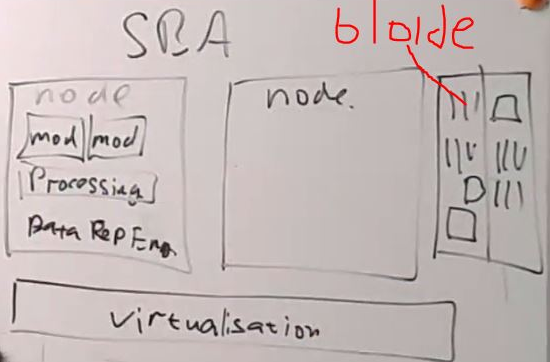 SBA
bloide
node
node.
mod mod
Processing
Data Rep Eng
virtualisation